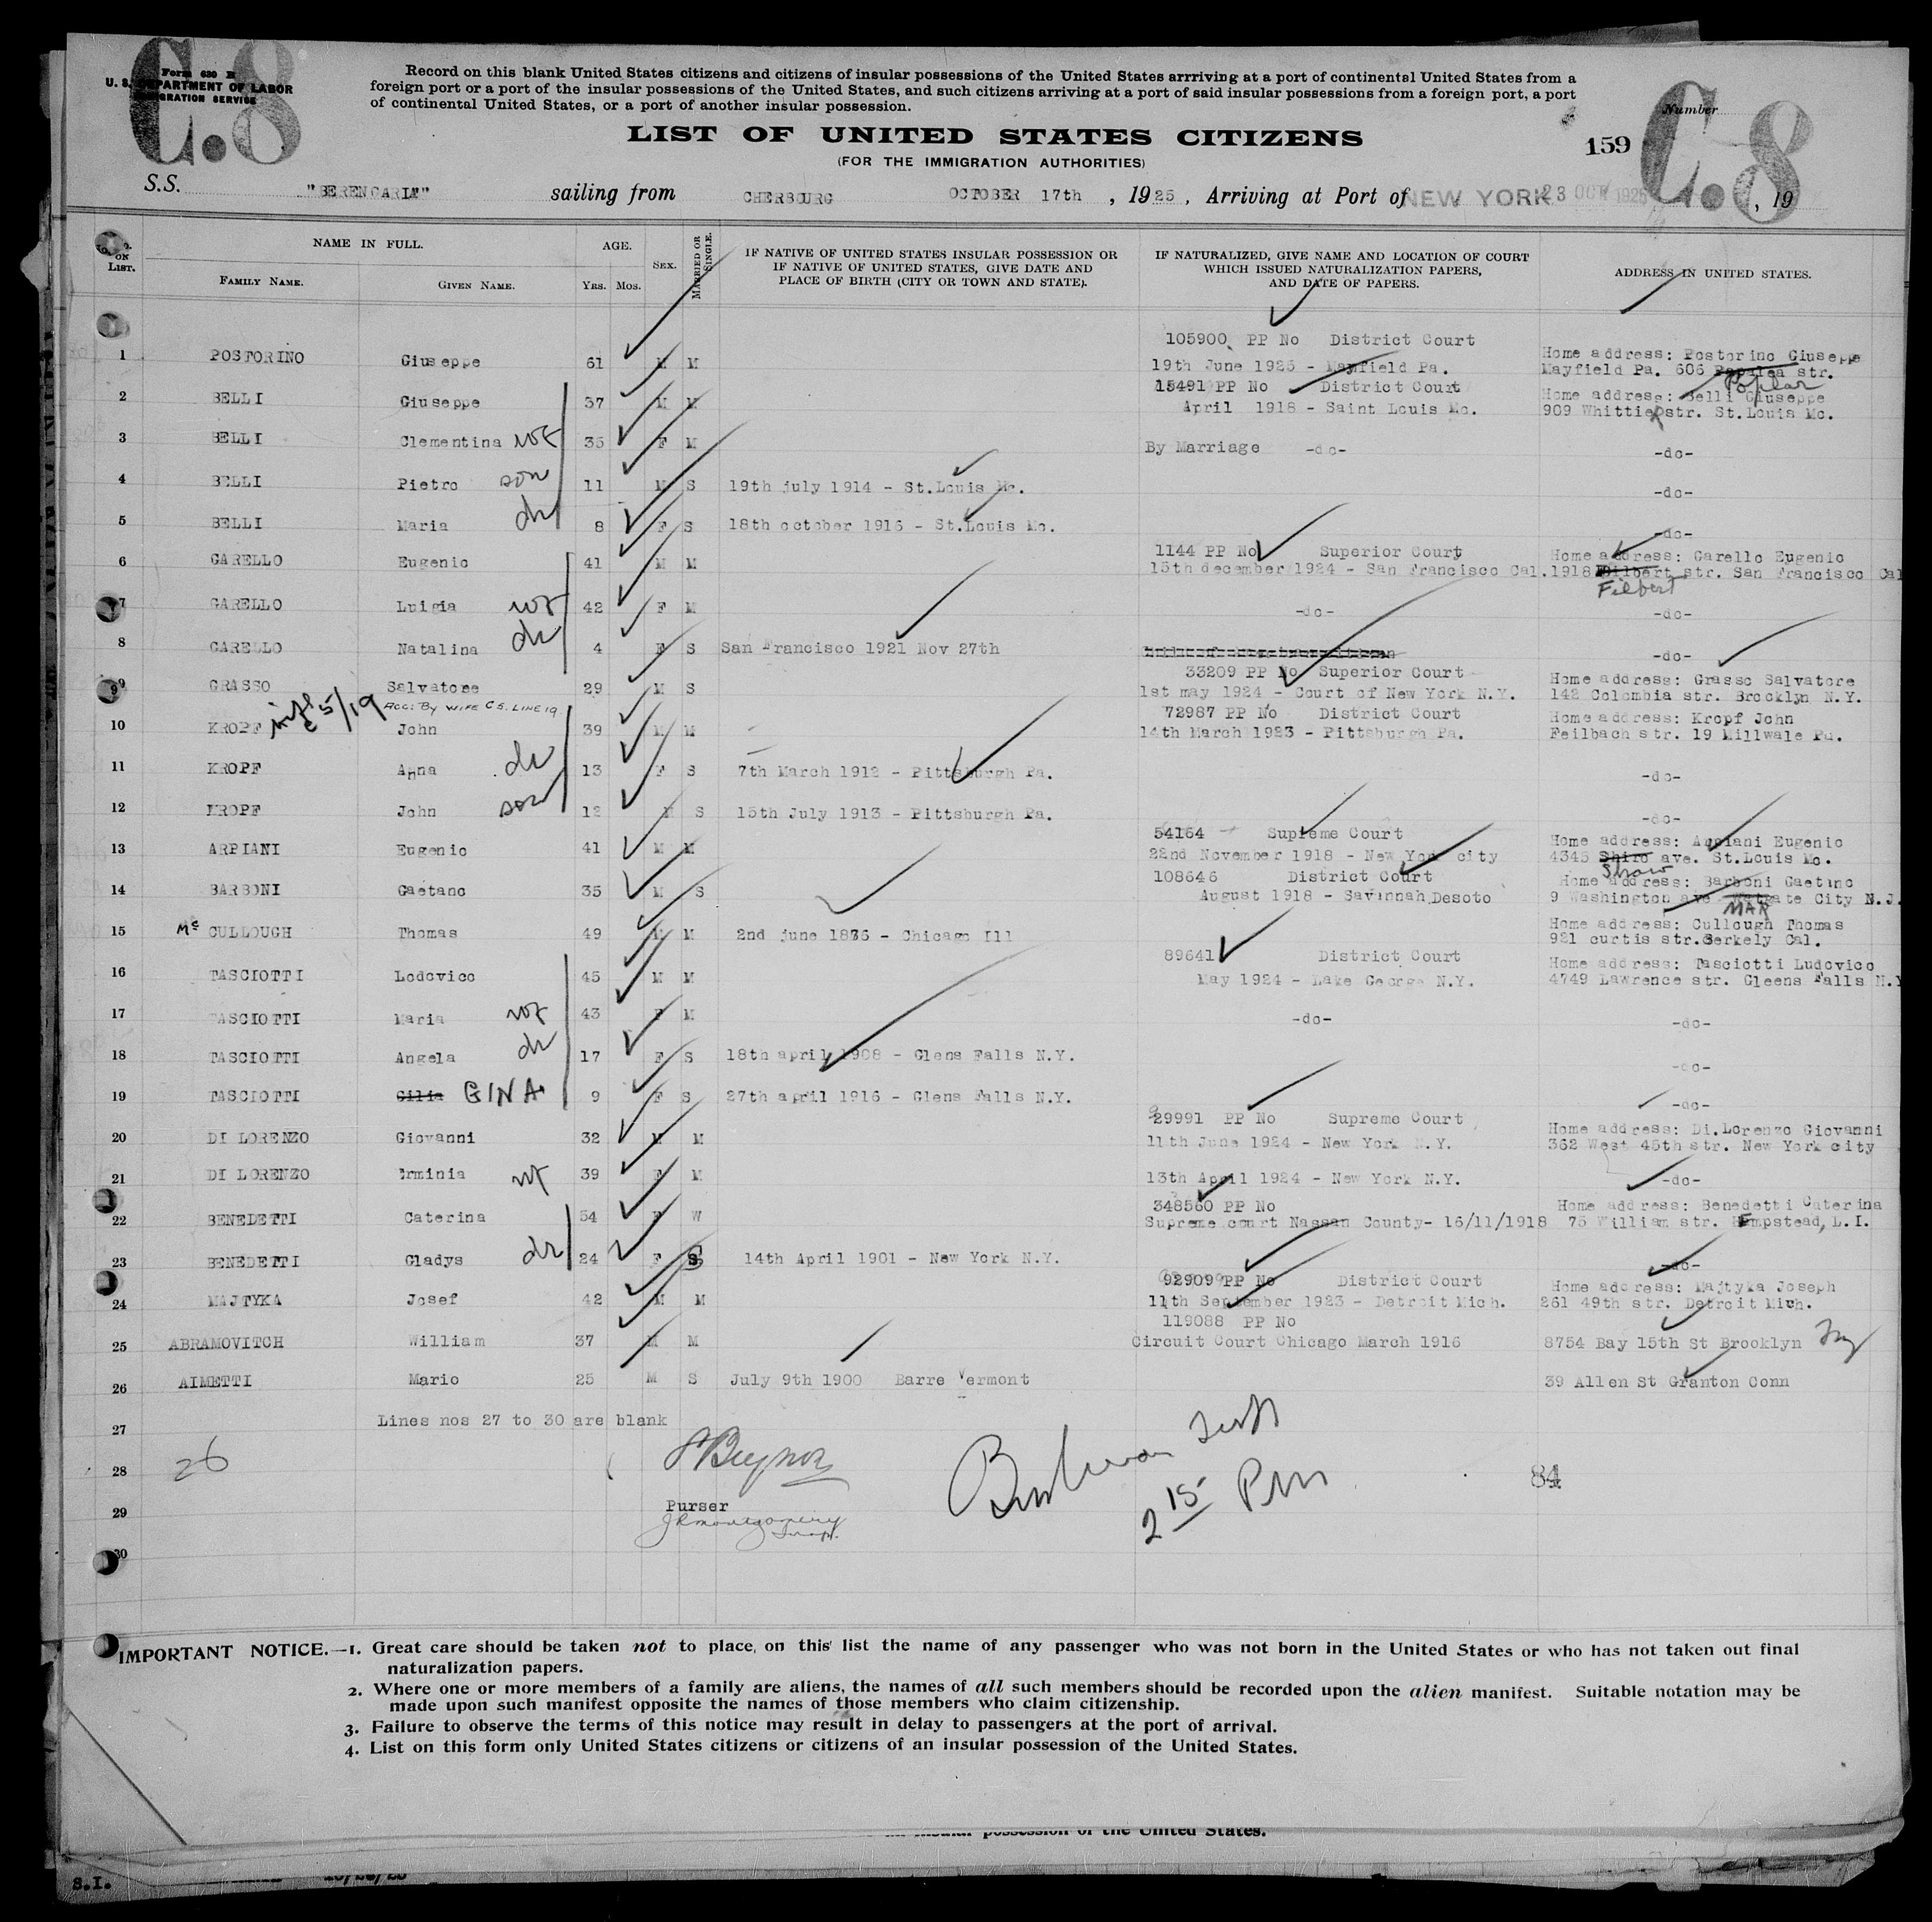 C.8
Form 630 B
U. S. DEPARTMENT OF LABOR
IMMIGRATION SERVICE
Record on this blank United States citizens and citizens of insular possessions of the United States arrriving at a port of continental United States from a
foreign port or a port of the insular possessions of the United States, and such citizens arriving at a port of said insular possessions from a foreign port, a port
of continental United States, or a port of another insular possession.
LIST OF UNITED STATES CITIZENS
(FOR THE IMMIGRATION AUTHORITIES)
Number
159
C.8
S.S. "BERENGARIA" sailing from CHERBOURG OCTOBER 17th , 1925 , Arriving at Port of NEW YORK 23 OCT 1925 , 19
No. ON LIST. NAME IN FULL. AGE. SEX. MARRIED OR SINGLE. IF NATIVE OF UNITED STATES INSULAR POSSESSION OR IF NATIVE OF UNITED STATES, GIVE DATE AND PLACE OF BIRTH (CITY OR TOWN AND STATE). IF NATURALIZED, GIVE NAME AND LOCATION OF COURT WHICH ISSUED NATURALIZATION PAPERS, AND DATE OF PAPERS. ADDRESS IN UNITED STATES.
FAMILY NAME. GIVEN NAME. YRS. MOS.
105900 PP No District Court
1 POSTORINO Giuseppe 61 M M 19th June 1925 - Mayfield Pa. Home address: Postorino Giuseppe
Mayfield Pa. 606 Poplar str.
15491 PP No District Court
2 BELLI Giuseppe 37 M M April 1918 - Saint Louis Mo. Home address: Belli Giuseppe
909 Whittier str. St.Louis Mo.
3 BELLI Clementina wf 35 F M By Marriage -do- -do-
4 BELLI Pietro son 11 M S 19th july 1914 - St.Louis Mo. -do-
5 BELLI Maria dr 8 F S 18th october 1916 - St.Louis Mo. -do-
1144 PP No Superior Court
6 GARELLO Eugenio 41 M M 15th december 1924 - San Francisco Cal. Home address: Garello Eugenio
1918 Filbert str. San Francisco Cal
7 GARELLO Luigia wf 42 F M -do- -do-
8 GARELLO Natalina dr 4 F S San Francisco 1921 Nov 27th -do-
33209 PP No Superior Court
9 GRASSO Salvatore 29 M S 1st may 1924 - Court of New York N.Y. Home address: Grasso Salvatore
142 Colombia str. Brocklyn N.Y.
ACC: BY WIFE C 5. LINE 19
5/19
72987 PP No District Court
10 KROPF John 39 M M 14th March 1923 - Pittsburgh Pa. Home address: Kropf John
Feilbach str. 19 Millwale Pa.
11 KROPF Anna dr 13 F S 7th March 1912 - Pittsburgh Pa. -do-
12 KROPF John son 12 M S 15th July 1913 - Pittsburgh Pa. -do-
54164 Supreme Court
13 ARPIANI Eugenio 41 M M 22nd November 1918 - New York city Home address: Arpiani Eugenio
4345 Shiro Shaw ave. St.Louis Mo.
108646 District Court
14 BARBONI Gaetano 35 M S August 1918 - Savannah Desoto Home address: Barboni Gaetano
9 Washington ave MARgate City N.J.
15 Mc CULLOUGH Thomas 49 M M 2nd june 1876 - Chicago Ill Home address: Cullough Thomas
921 curtis str. Berkely Cal.
89641 District Court
16 TASCIOTTI Lodovico 45 M M May 1924 - Lake George N.Y. Home address: Tasciotti Ludovico
4749 Lawrence str. Gleens Falls N.Y
17 TASCIOTTI Maria wf 43 F M -do- -do-
18 TASCIOTTI Angela dr 17 F S 18th april 1908 - Glens Falls N.Y. -do-
19 TASCIOTTI Gilia GINA 9 F S 27th april 1916 - Glens Falls N.Y. -do-
29991 PP No Supreme Court
20 DI LORENZO Giovanni 32 M M 11th June 1924 - New York N.Y. Home address: Di.Lorenzo Giovanni
362 West 45th str. New York city
21 DI LORENZO Erminia wf 39 F M 13th April 1924 - New York N.Y. -do-
348560 PP No
22 BENEDETTI Caterina 54 F W Supreme court Nassan County- 16/11/1918 Home address: Benedetti Caterina
75 William str. Hempstead, L.I.
23 BENEDETTI Gladys dr 24 F S 14th April 1901 - New York N.Y. -do-
92909 PP No District Court
24 MAJTYKA Josef 42 M M 11th September 1923 - Detroit Mich. Home address: Majtyka Joseph
261 49th str. Detroit Mich.
119088 PP No
25 ABRAMOVITCH William 37 M M Circuit Court Chicago March 1916 8754 Bay 15th St Brocklyn
26 AIMETTI Mario 25 M S July 9th 1900 Barre Vermont 39 Allen St Granton Conn
27 Lines nos 27 to 30 are blank
28 26 84
Purser
29 JR Montgomery
Insp.
2 15 Pm
30
IMPORTANT NOTICE.—1. Great care should be taken not to place, on this list the name of any passenger who was not born in the United States or who has not taken out final
naturalization papers.
2. Where one or more members of a family are aliens, the names of all such members should be recorded upon the alien manifest. Suitable notation may be
made upon such manifest opposite the names of those members who claim citizenship.
3. Failure to observe the terms of this notice may result in delay to passengers at the port of arrival.
4. List on this form only United States citizens or citizens of an insular possession of the United States.
possession of the United States.
S.I.